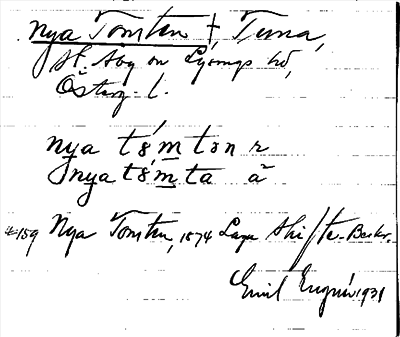 Nya Tomten, Tuna,
St. Åby sn Lysings hd,
Östergl.
nya tómtən r
nya tómta ã
159 Nya Tomten, 1874 Laga Skifte-Beskr.
Emil 1931